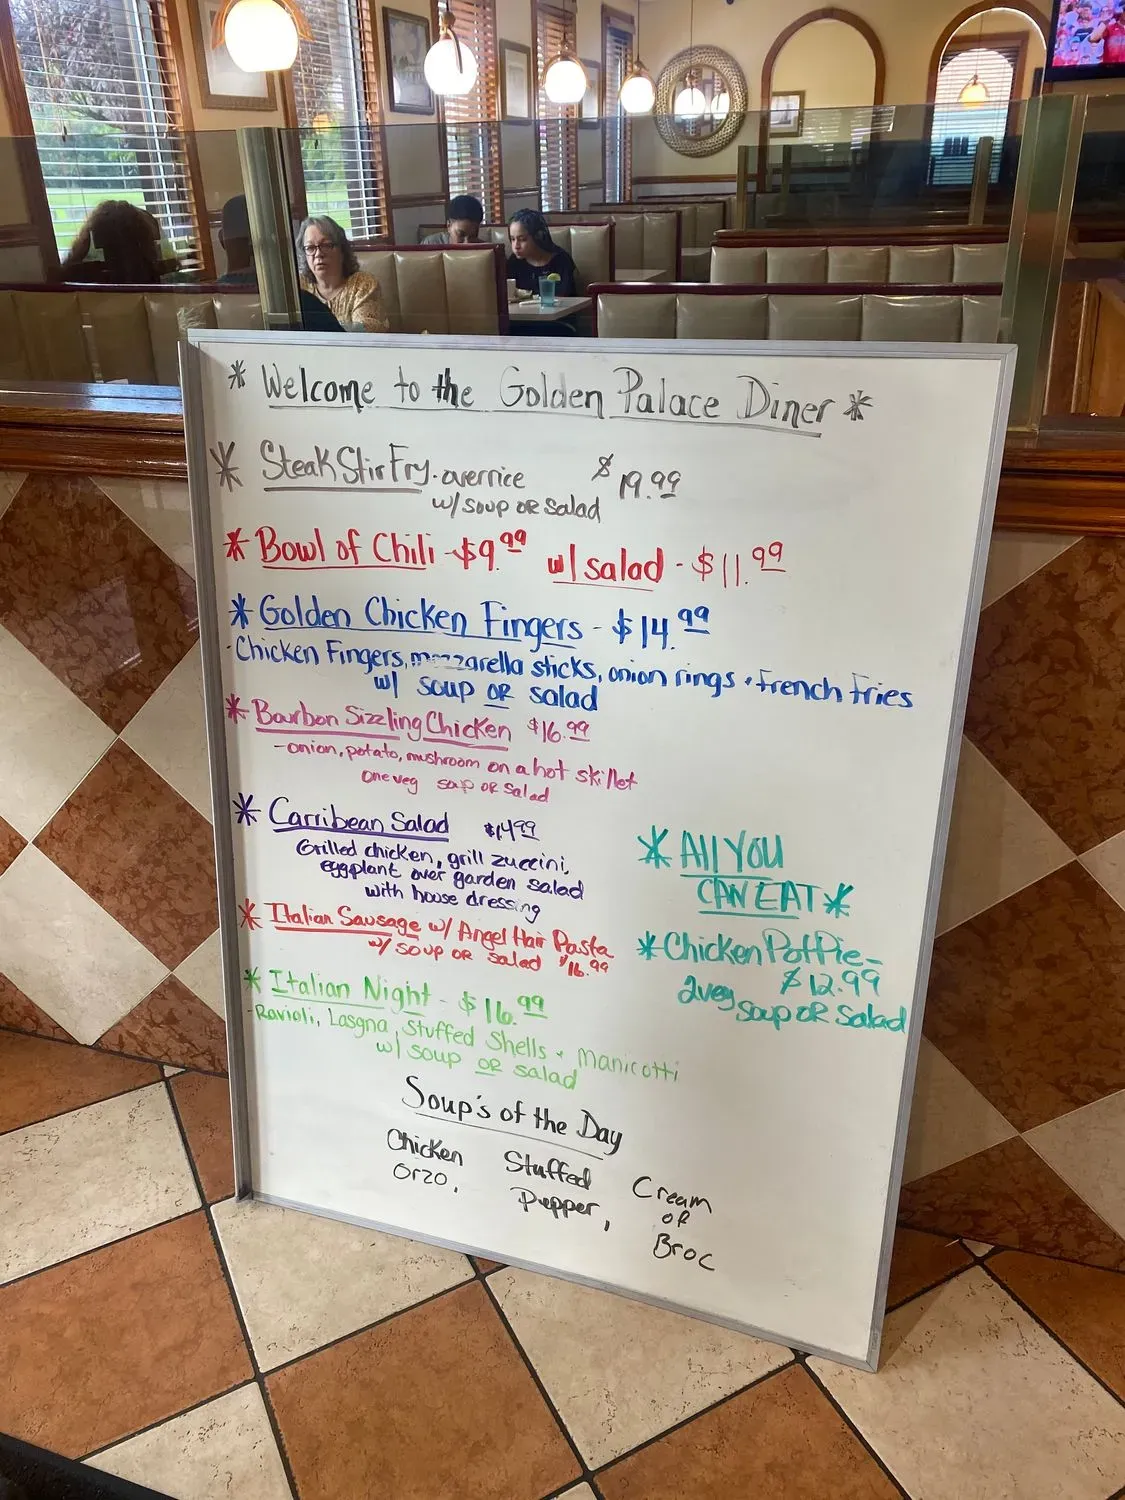 * Welcome to the Golden Palace Diner *
* Steak Stir Fry. over rice $19.99
w/ soup or salad
* Bowl of Chili - $9.99 w/ salad - $11.99
* Golden Chicken Fingers - $14.99
- Chicken Fingers, mozzarella sticks, onion rings + french fries
w/ soup or salad
* Bourbon Sizzling Chicken $16.99
- onion, potato, mushroom on a hot skillet
one veg soup or salad
* Carribean Salad $14.99
Grilled chicken, grill zuccini,
eggplant over garden salad
with house dressing
* Italian Sausage w/ Angel Hair Pasta
w/ soup or salad $16.99
* Italian Night - $16.99
- Ravioli, Lasgna, Stuffed Shells + Manicotti
w/ soup or salad
* All YOU
CAN EAT *
* Chicken Pot Pie -
$12.99
2 veg soup or salad
Soup's of the Day
Chicken Orzo, Stuffed Pepper, Cream of Broc